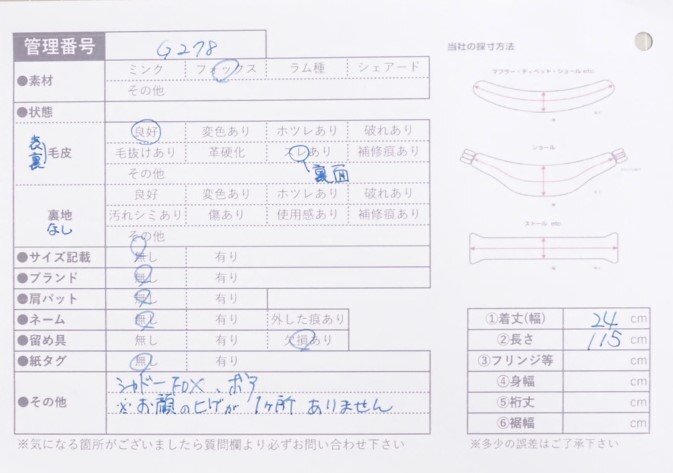 管理番号 G278
●素材 ミンク フォックス ラム種 シェアード
その他
●状態
表裏 毛皮 良好 変色あり ホツレあり 破れあり
毛抜けあり 革硬化 スレあり 補修痕あり
その他 裏面
裏地 なし 良好 変色あり ホツレあり 破れあり
汚れシミあり 傷あり 使用感あり 補修痕あり
その他
●サイズ記載 無し 有り
●ブランド 無し 有り
●肩パット 無し 有り
●ネーム 無し 有り 外した痕あり
●留め具 無し 有り 欠損あり
●紙タグ 無し 有り
●その他 シャドーFOX、ボア
※お顔のヒゲが1ヶ所ありません
※気になる箇所がございましたら質問欄より必ずお問い合わせ下さい
当社の採寸方法
マフラー・ティペット・ショール etc.
ショール
ストール etc.
①着丈(幅) 24 cm
②長さ 115 cm
③フリンジ等 cm
④身幅 cm
⑤裄丈 cm
⑥裾幅 cm
※多少の誤差はご了承下さい